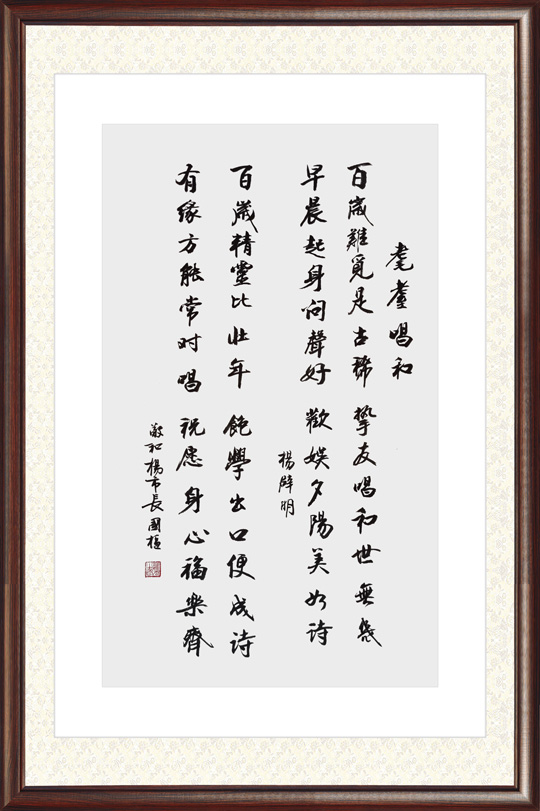 耄耋唱和
百歲難覓是古稀 摯友唱和世無幾
早晨起身問聲好 歡娛夕陽美如詩
楊辟明
百歲精靈比壯年 飽學出口便成詩
有緣方能常时唱 祝愿身心福樂齊
敬和楊市長國樞